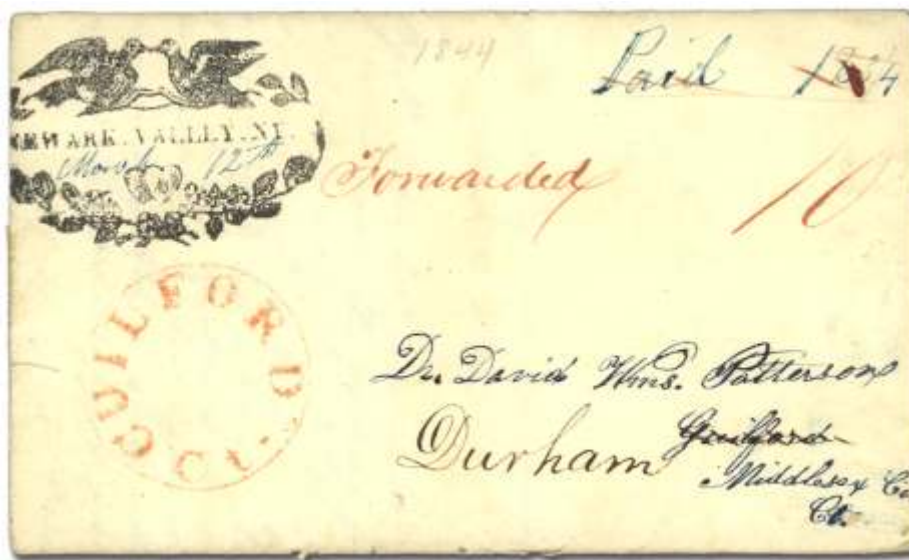 1844
Paid 18 3/4
NEWARK. VALLEY. NY.
March 12th
Forwarded 10
GUILFORD CT
Dr. David Wms. Patterson
Guilford
Durham
Middlesex Co
Ct.